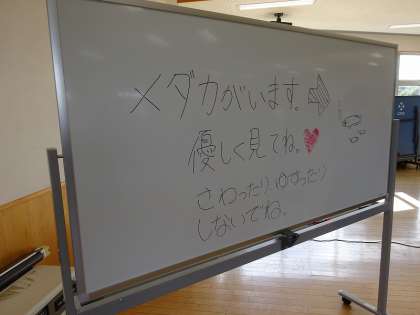 メダカがいます。⇨
優しく見てね。♥
さわったり、ゆすったり
しないでね。